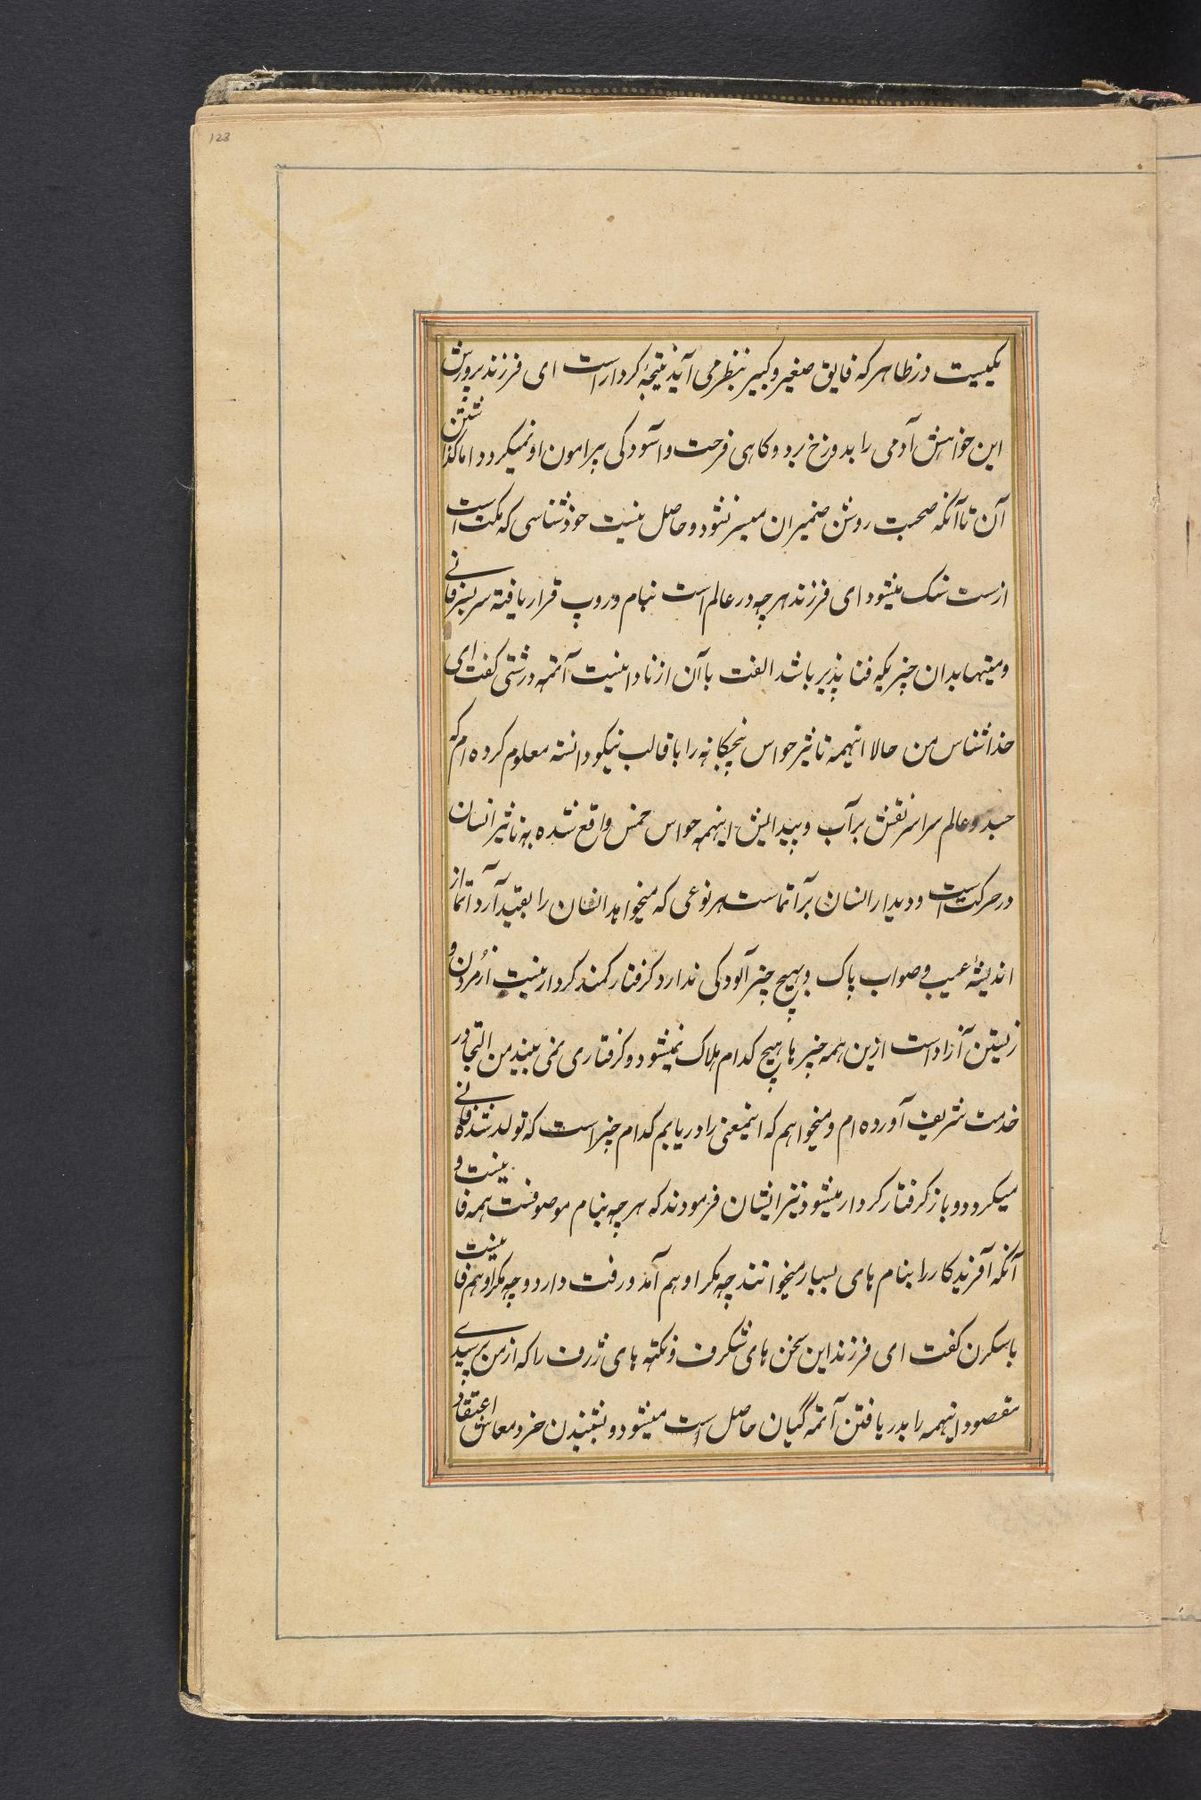 123
یکیست در ظاهر که فایق صغیر و کبیر بنظر می آید نتیجۀ کردار است ای فرزند پرورش
این خواهش آدمی را بدوزخ برد و کاهی فرحت و آسودکی پیرامون او نمیکردد اما کذاشتن
آن تا آنکه صحبت روشن ضمیران میسر نشود و حاصل نیست خودشناسی که مکت است
ازست سنک میشود ای فرزند هر چه در عالم است بنام و روپ قرار یافته سربسر فانی
و میتها بدان چیزیکه فنا پذیر باشد الفت با آن از نادانیست آتمه درشتی کفت ای
خداشناس من حالا اینهمه تاثیر حواس پنجکانه را با قالب نیکو دانسته معلوم کرده ام که
جسد و عالم سراسر نقش بر آب و پیدایش اینهمه حواس خمس واقع شده به تاثیر انسان
در حرکت است و دیدار انسان بر آتماست هر نوعی که میخواهد انسان را بقید آرد آتما از
اندیشۀ عیب و صواب پاک و بهیچ چیز آلودکی ندارد کرفتار کمند کردار نیست از مردن و
زیستن آزاد است ازین همه چیز ها هیچ کدام هلاک نمیشود و کرفتاری نمی بیند من التجا در
خدمت شریف آورده ام و میخواهم که اینمعنی را دریابم کدام چیز است که تولد شده فانی
میکردد و باز کرفتار کردار میشود نیز ایشان فرمودند که هر چه بنام موصوفست همه فانیست و
آنکه آفریدکار را بنام های بسیار میخوانند چه مکر او هم آمد و رفت دارد و چه مکر او هم فانیست
باسکرن کفت ای فرزند این سخن های شکرف و نکته های ژرف را که از من پرسیدی
مقصود اینهمه را بدریافتن آتمه گیان حاصل است میشود و بشنیدن خرد معاش اعتقاد